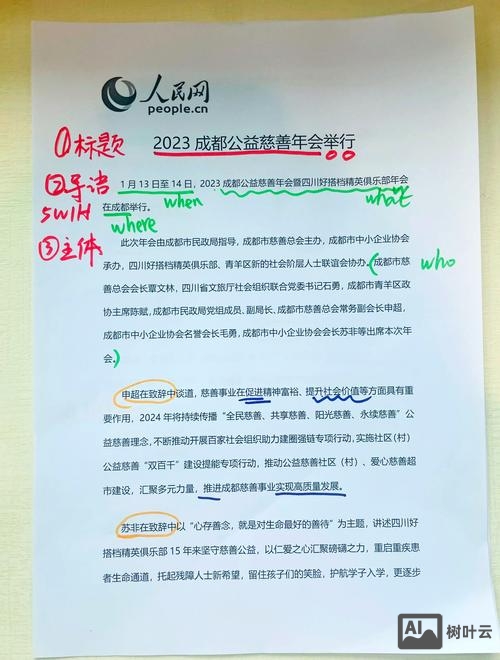 人民网
people.cn
2023 成都公益慈善年会举行
①标题
②导语
5W1H
③主体
1 月 13 日至 14 日，2023 成都公益慈善年会暨四川好搭档精英俱乐部年会
when
what
在成都举行。
where
此次年会由成都市民政局指导，成都市慈善总会主办，成都市中小企业协会
承办，四川好搭档精英俱乐部、青羊区新的社会阶层人士联谊会协办。(成都市慈
who
善总会会长覃文林，四川省文旅厅社会组织联合党委书记石勇，成都市青羊区政
协主席陈赋，成都市民政局党组成员、副局长、成都市慈善总会常务副会长申超，
成都市中小企业协会名誉会长毛勇，成都市中小企业协会会长苏非等出席本次年
会。)
申超在致辞中谈道，慈善事业在促进精神富裕、提升社会价值等方面具有重
要作用，2024 年将持续传播“全民慈善、共享慈善、阳光慈善、永续慈善”公
益慈善理念，不断推动开展百家社会组织助力建圈强链专项行动，实施社区（村）
公益慈善“双百千”建设提能专项行动，推动公益慈善社区（村）、爱心慈善超
市建设，汇聚多元力量，推进成都慈善事业实现高质量发展。
苏非在致辞中以“心存善念，就是对生命最好的善待”为主题，讲述四川好
搭档精英俱乐部 15 年来坚守慈善公益，以仁爱之心汇聚磅礴之力，重启重疾患
者生命通道，托起残障人士新希望，留住孩子们的笑脸，护航学子入学，更逐步
AI 树叶云